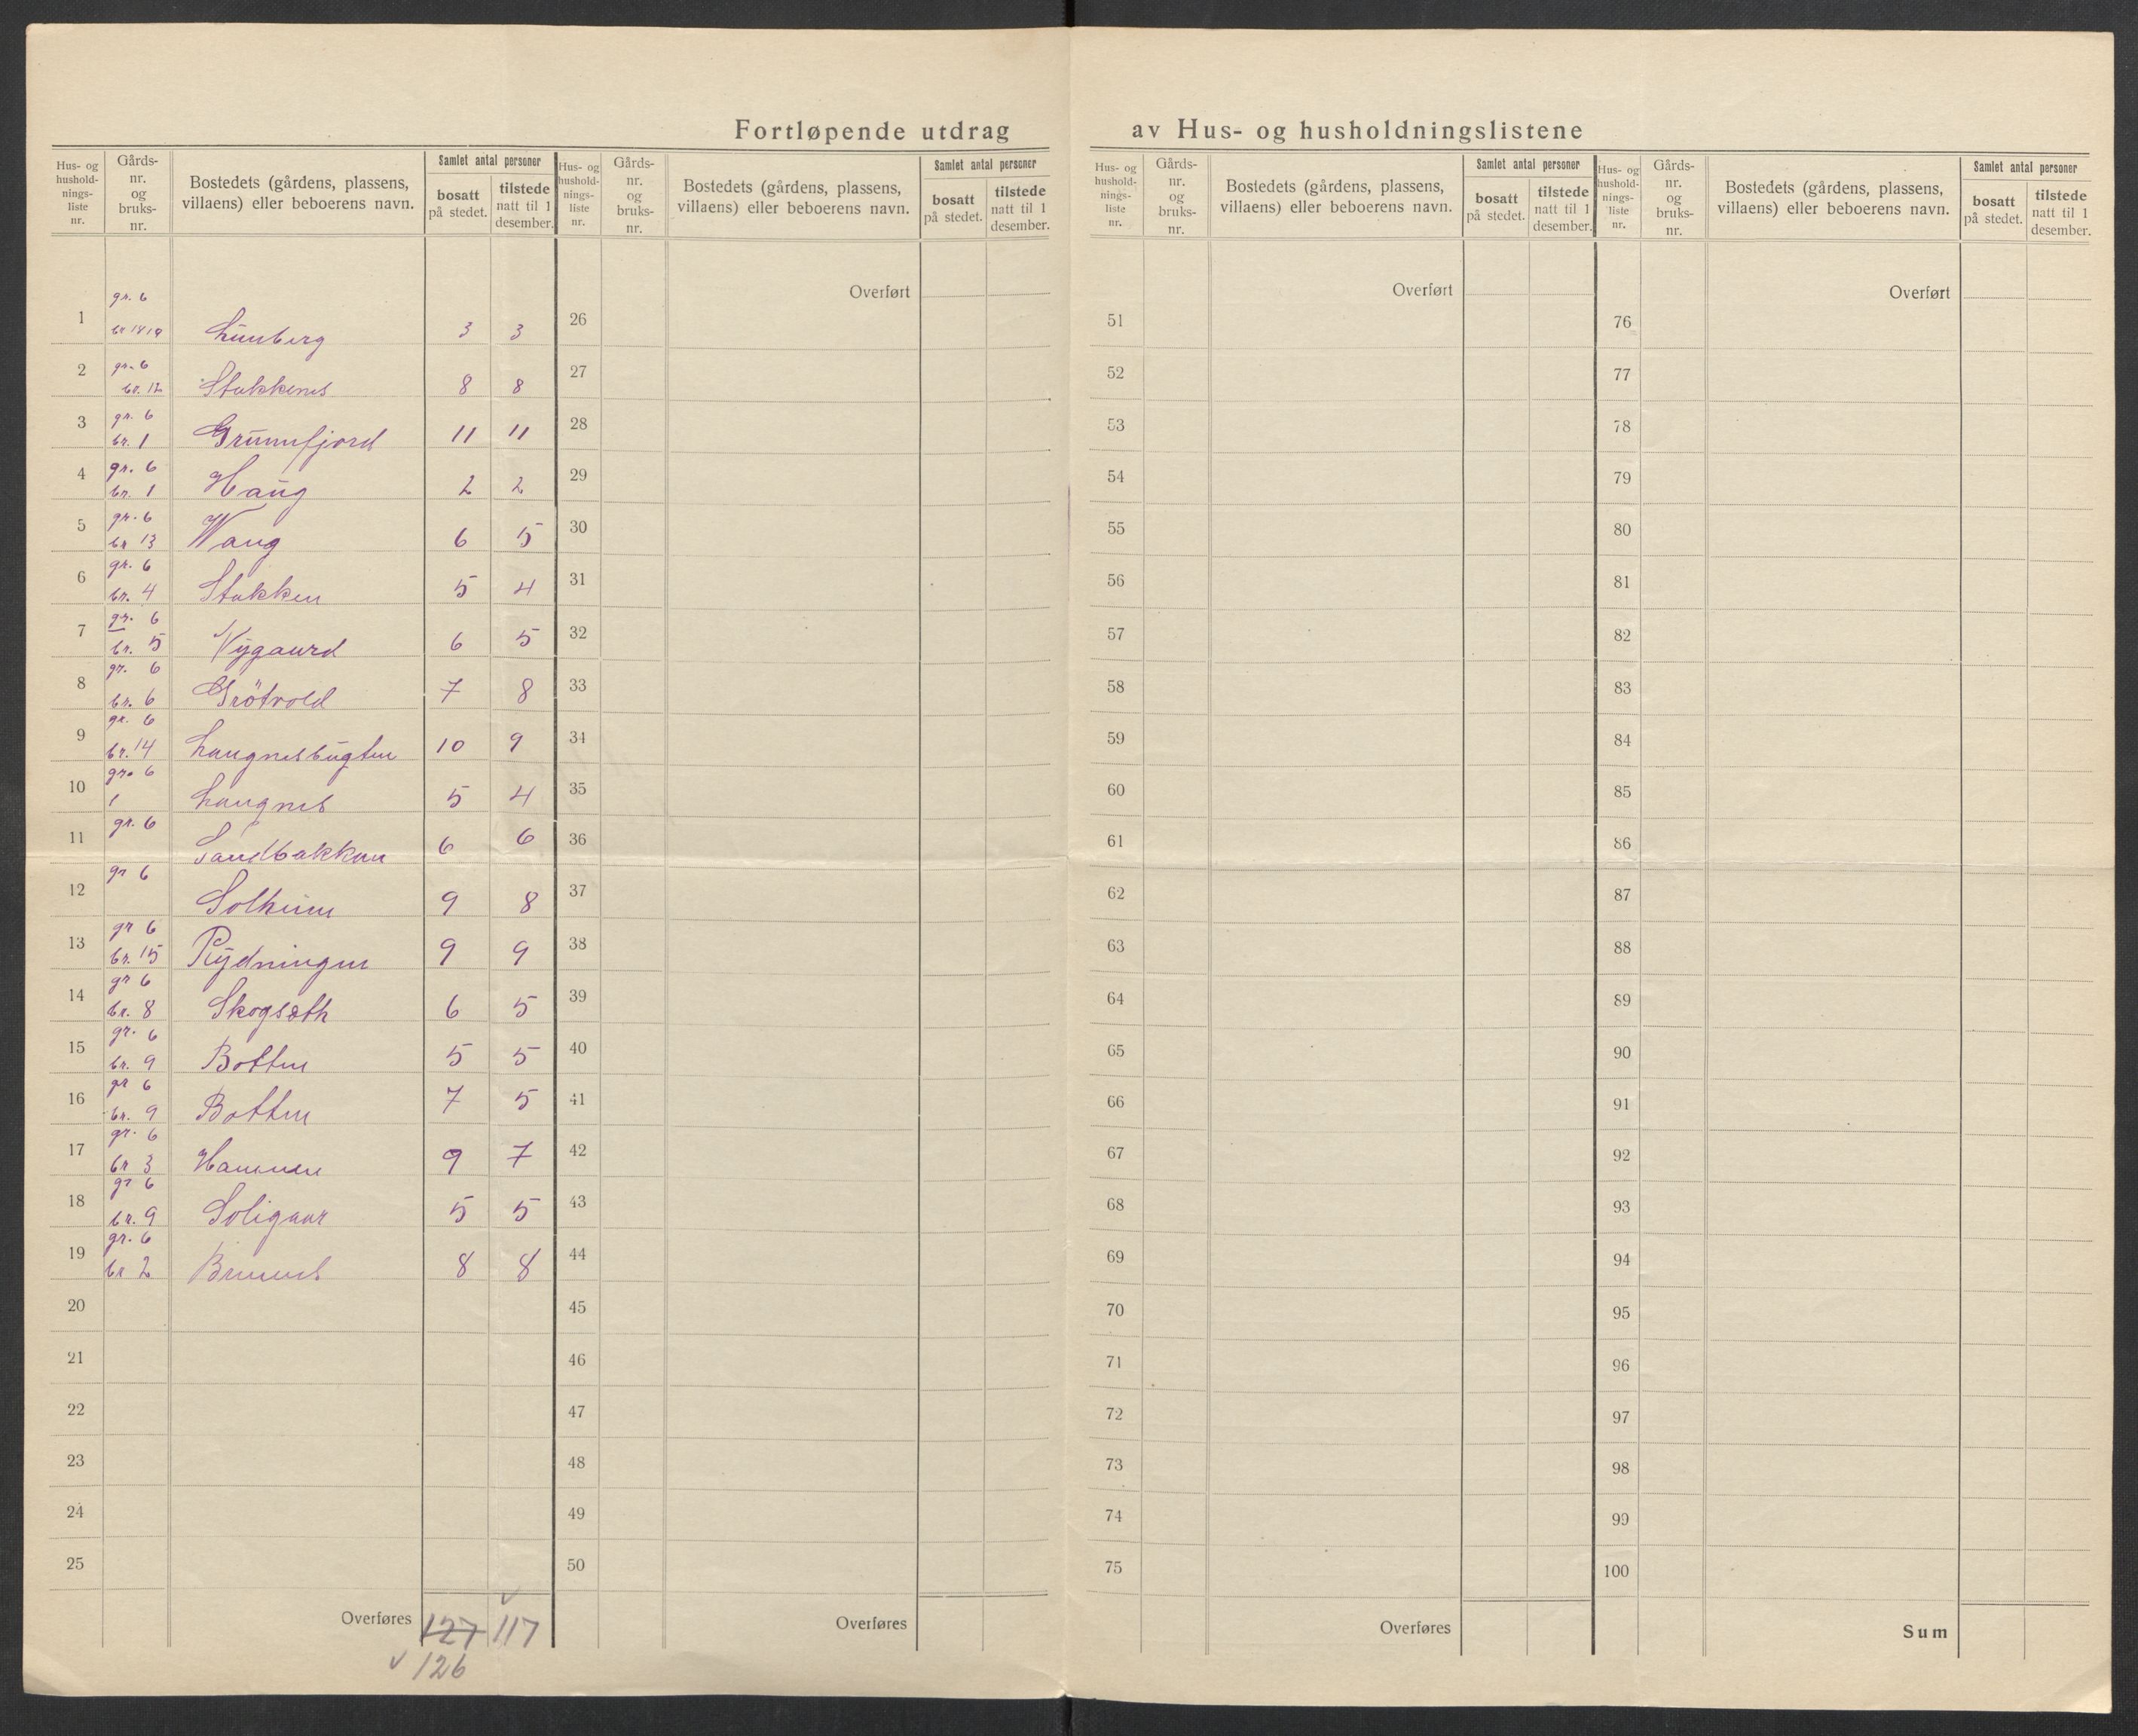 Fortløpende utdrag av Hus- og husholdningslistene
Hus- og hushold- nings- liste nr. | Gårds- nr. og bruks- nr. | Bostedets (gårdens, plassens, villaens) eller beboerens navn. | Samlet antal personer | bosatt på stedet. | tilstede natt til 1 desember.
1 gr. 6 br 18 19 Lunberg 3 3
2 gr. 6 br. 12 Stakkenes 8 8
3 gr. 6 br. 1 Grunnfjord 11 11
4 gr. 6 br. 1 Haug 2 2
5 gr. 6 br 13 Wang 6 5
6 gr. 6 br. 4 Stakken 5 4
7 gr. 6 br. 5 Nygaard 6 5
8 gr. 6 br. 6 Grötvold 7 8
9 gr. 6 br. 14 Langnesbugten 10 9
10 gr. 6 1 Langnes 5 4
11 gr. 6 Sandbakken 6 6
12 gr 6 Solheim 9 8
13 gr 6 br. 15 Rydningen 9 9
14 gr 6 br. 8 Skogsæth 6 5
15 gr. 6 br. 9 Botten 5 5
16 gr 6 br. 9 Botten 7 5
17 gr. 6 br 3 Hamnen 9 7
18 gr 6 br. 9 Soligaar 5 5
19 gr. 6 br 2 8 8
20
21
22
23
24
25
Overføres 127 117
126
Hus- og hushold- nings- liste nr. | Gårds- nr. og bruks- nr. | Bostedets (gårdens, plassens, villaens) eller beboerens navn. | Samlet antal personer | bosatt på stedet. | tilstede natt til 1 desember.
Overført
26
27
28
29
30
31
32
33
34
35
36
37
38
39
40
41
42
43
44
45
46
47
48
49
50
Overføres
Hus- og hushold- nings- liste nr. | Gårds- nr. og bruks- nr. | Bostedets (gårdens, plassens, villaens) eller beboerens navn. | Samlet antal personer | bosatt på stedet. | tilstede natt til 1 desember.
Overført
51
52
53
54
55
56
57
58
59
60
61
62
63
64
65
66
67
68
69
70
71
72
73
74
75
Overføres
Hus- og hushold- nings- liste nr. | Gårds- nr. og bruks- nr. | Bostedets (gårdens, plassens, villaens) eller beboerens navn. | Samlet antal personer | bosatt på stedet. | tilstede natt til 1 desember.
Overført
76
77
78
79
80
81
82
83
84
85
86
87
88
89
90
91
92
93
94
95
96
97
98
99
100
Sum